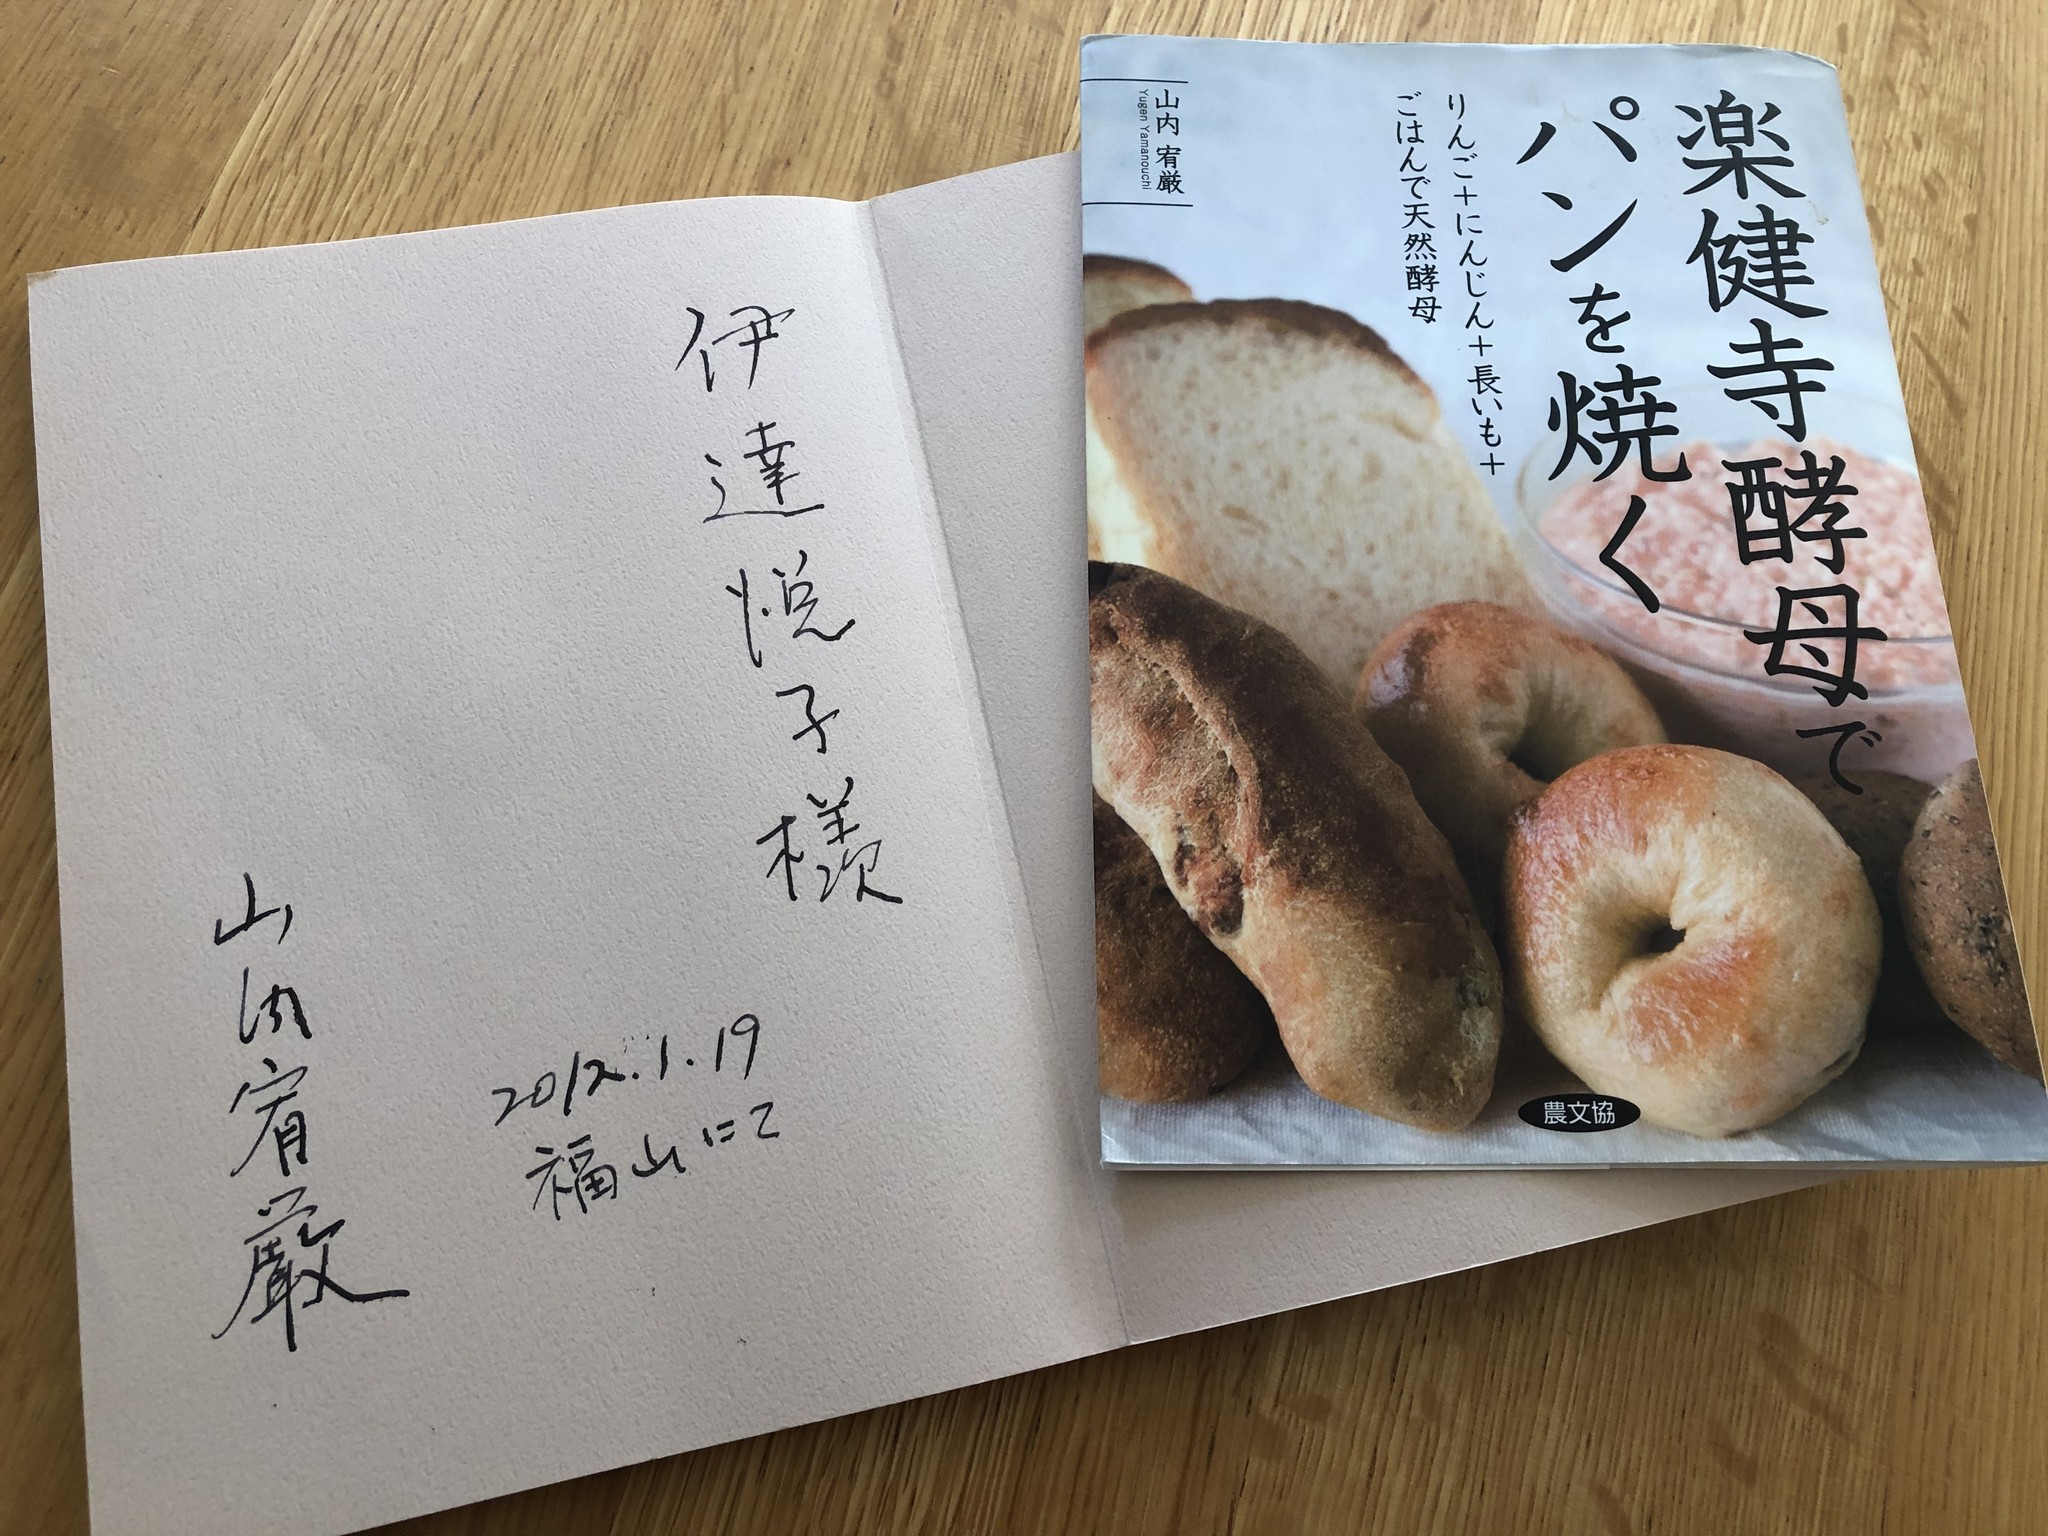 伊達悦子様
2012.1.19
福山にて
山内宥厳
楽健寺酵母で
パンを焼く
りんご+にんじん+長いも+
ごはんで天然酵母
山内 宥厳
Yugen Yamanouchi
農文協